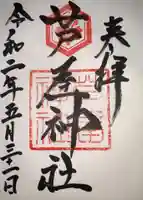 奉拝
芦屋神社
令和二年五月三十一日